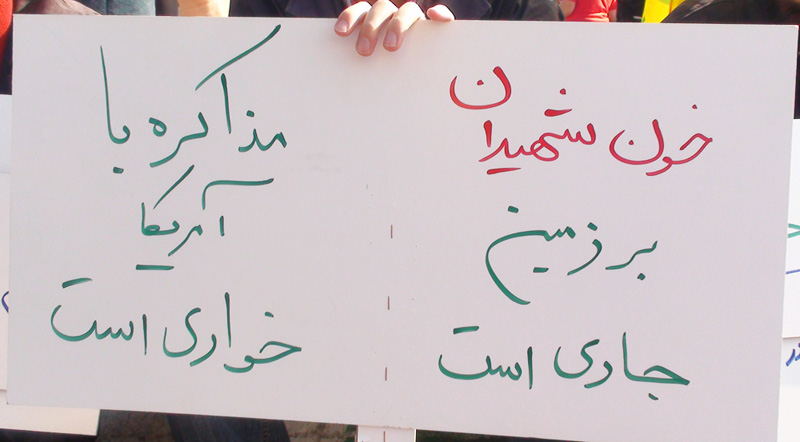 خون شهیدان
بر زمین
جاری است
مذاکره با
آمریکا
خواری است